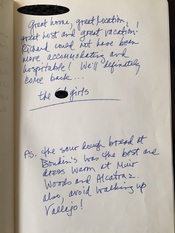 Great home, great location,
great host and great vacation.
Richard could not have been
more accommodating and
hospitable! We'll definitely
come back...
the girls
P.S. the sour dough bread at
Boudin's was the best and
dress warm at Muir
Woods and Alcatraz
also, avoid walking up
Vallejo!